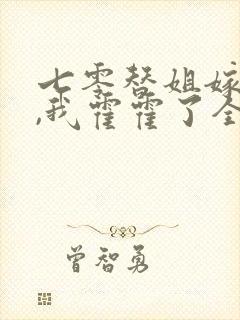 七零替姐嫁
,我霍霍了全
曾智勇